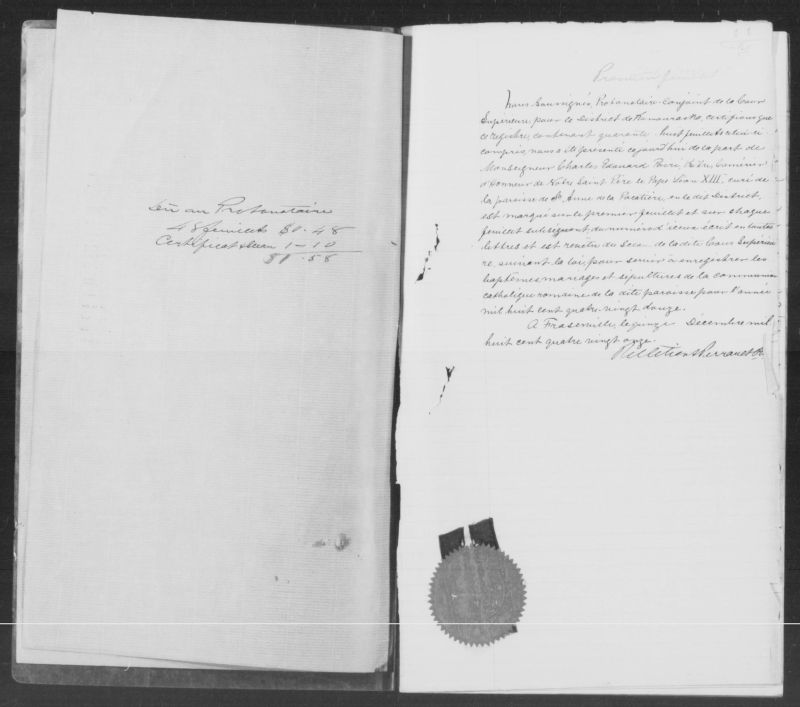 Dû au Protonotaire
48 feuillets $0.48
Certificat & sceau 1-10
$1.58
Premier feuillet
Nous Soussignés, Protonotaire-Conjoint de la Cour
Supérieure, pour le District de Kamouraska, certifions que
ce registre, contenant quarante-huit feuillets celui-ci
compris, nous a été présenté ce jourd'hui de la part de
Monseigneur Charles Edouard Poiré, Ptre, Camérier
d'Honneur de Notre Saint Père le Pape Léon XIII, curé de
la paroisse de Ste Anne de la Pocatière, en le dit District,
est marqué sur le premier feuillet et sur chaque
feuillet subséquent du numéro d'icelui écrit en toutes
lettres et est revêtu du Sceau de la dite Cour Supérieu-
re, suivant la loi, pour servir à enregistrer les
baptêmes mariages et sépultures de la communion
catholique romaine de la dite paroisse pour l'année
mil huit cent quatre-vingt douze.
A Fraserville, le quinze Décembre mil
huit cent quatre vingt onze.
Pelletier & Perrault